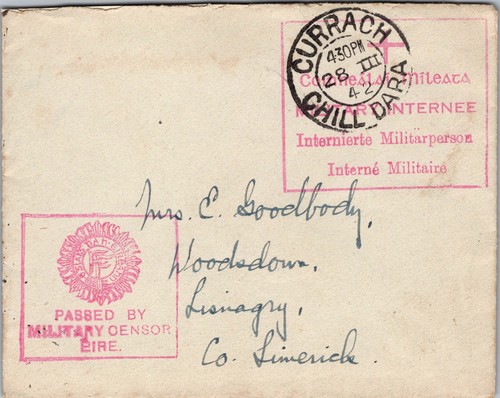 CURRACH
430PM
28 III
42
CHILL DARA
MILITARY INTERNEE
Internierte Militärperson
Interné Militaire
Mrs. E. Goodbody,
Woodsdown,
Lisnagry,
Co. Limerick.
PASSED BY
MILITARY CENSOR
EIRE.